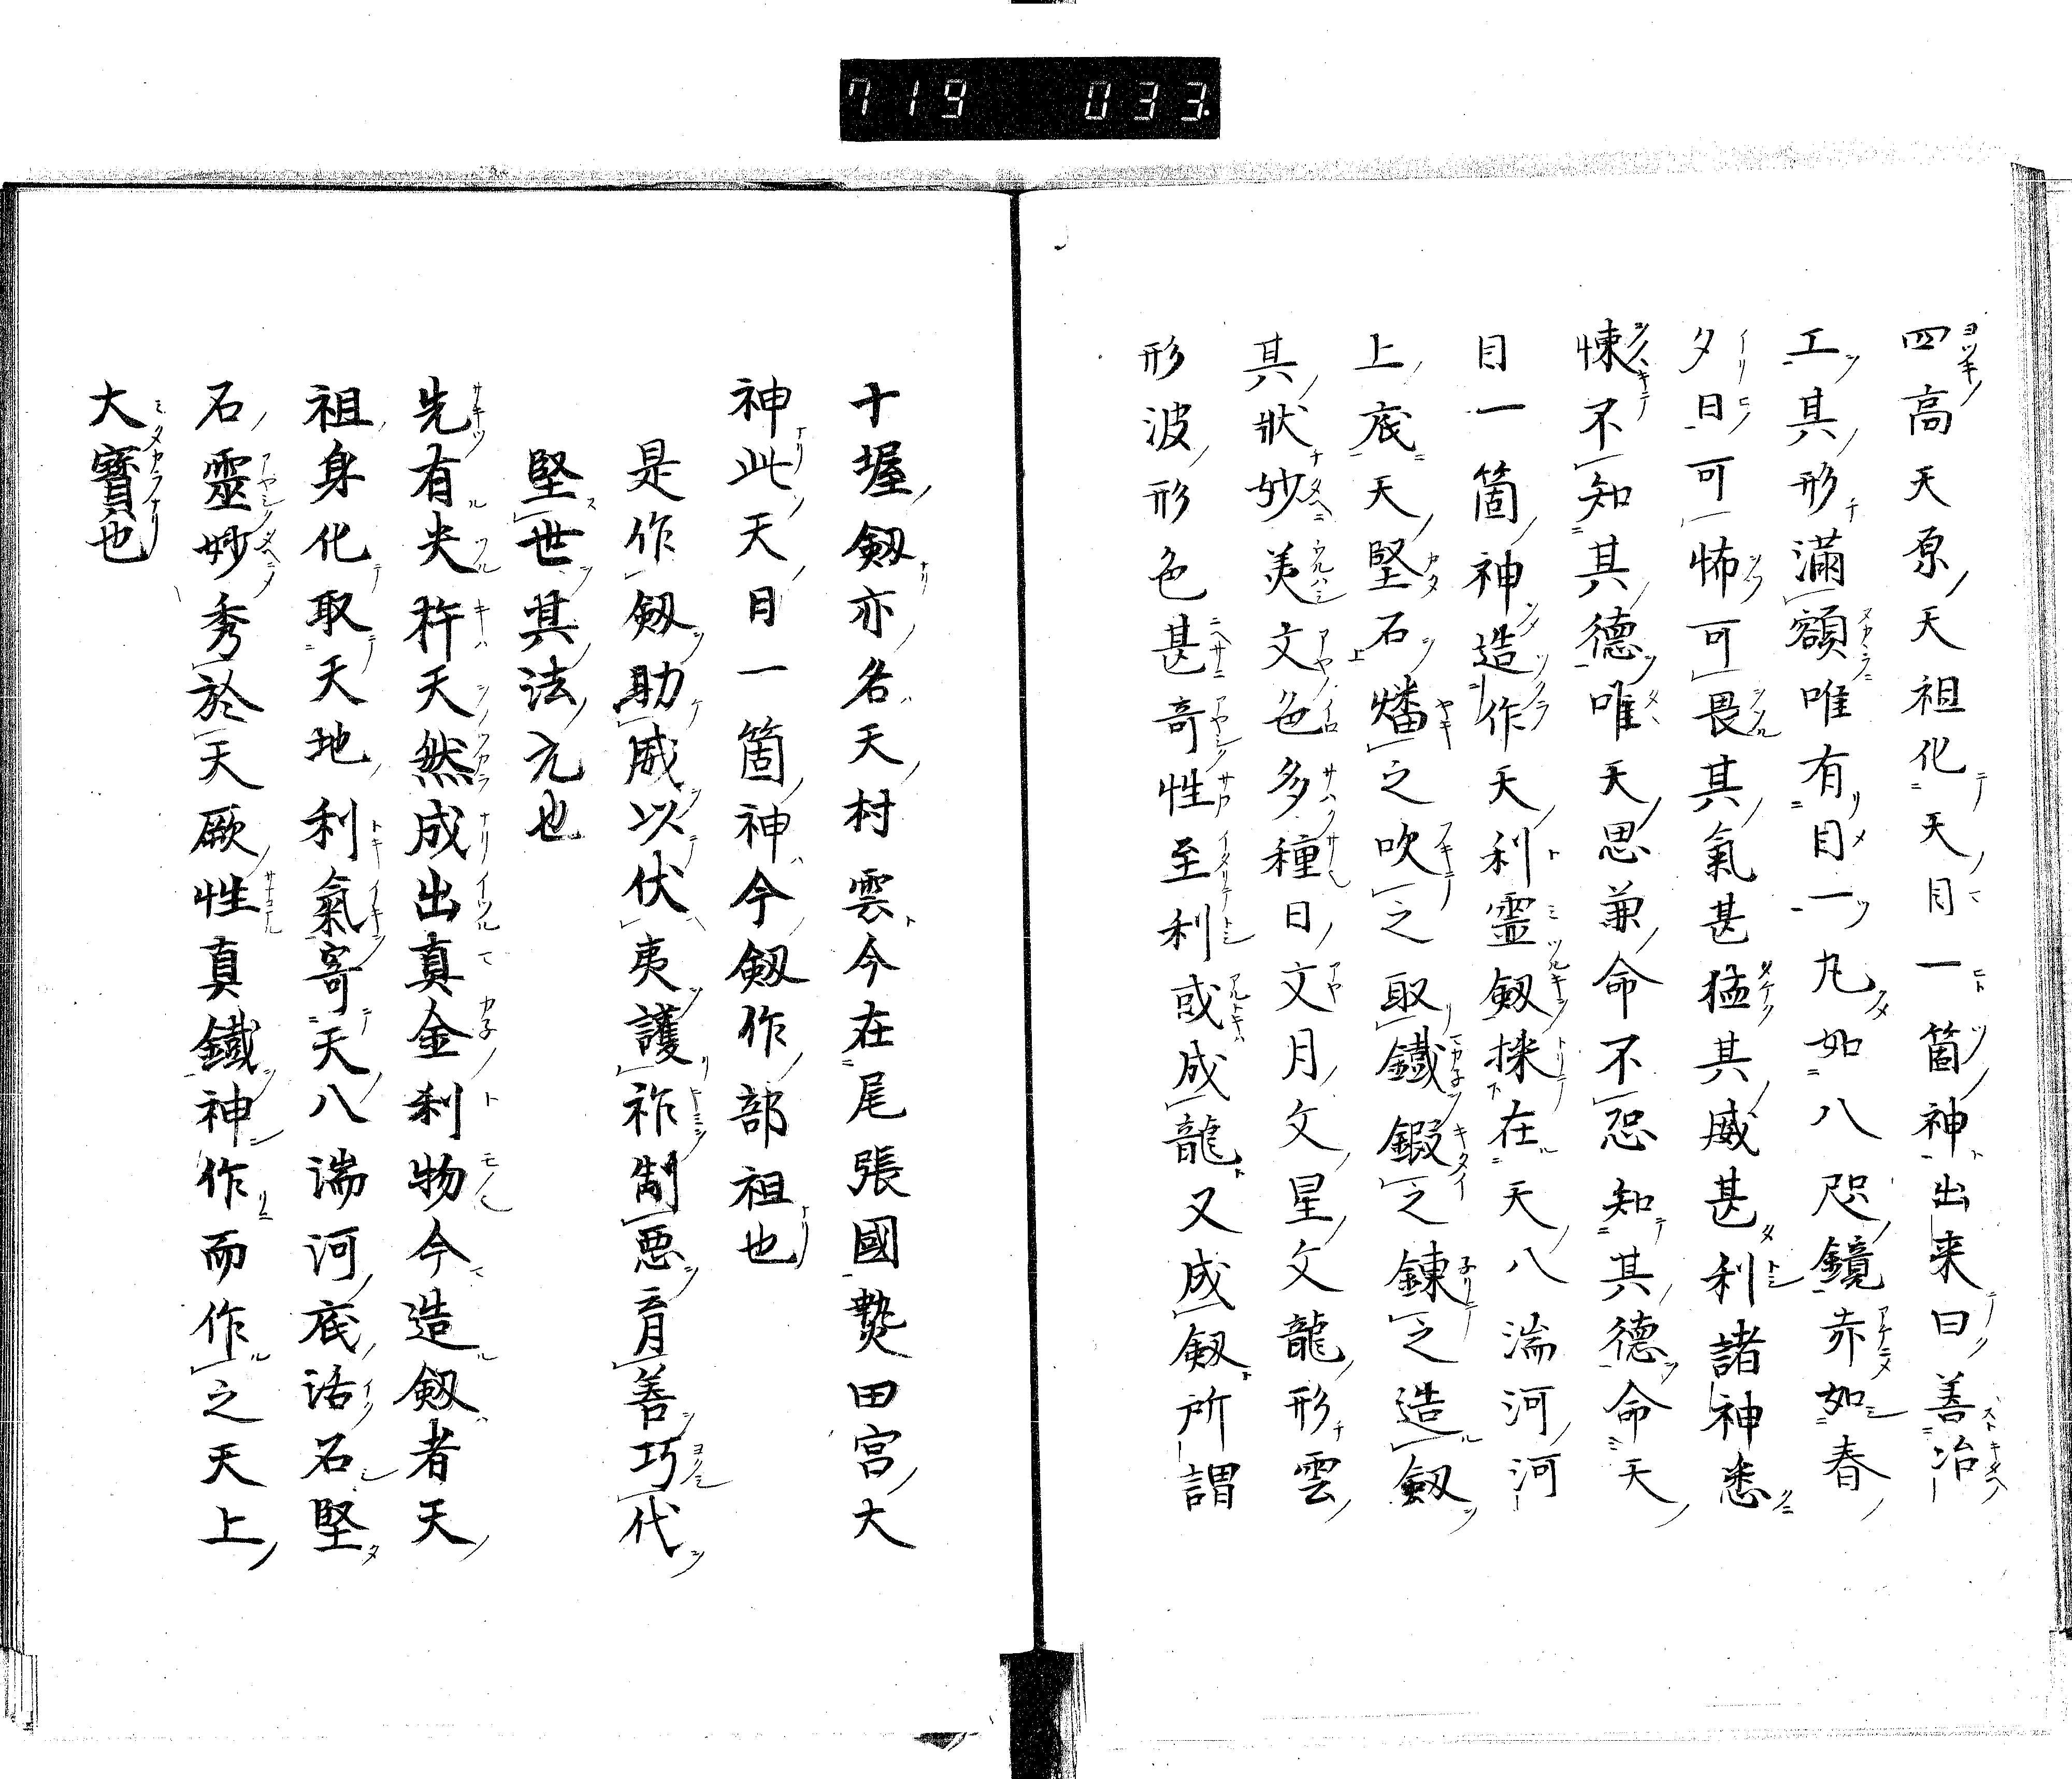 719 033
四高天原天祖化天目一箇神出来曰善冶
工其形満額唯有目一丸如八咫鏡赤如春
夕日可怖可畏其氣甚猛其威甚利諸神悉
悚不知其德唯天思兼命不怨知其德命天
目一箇神造作天利靈劔採在天八湍河河
上底天堅石燔之吹之取鐵鍜之鍊之造劔
其狀妙美文色多種日文月文星文龍形雲
形波形色甚奇性至利或成龍又成劔所謂
十握劔亦名天村雲今在尾張國𤍠田宮大
神此天目一箇神今劔作部祖也
是作劔助威以伏夷護祚制悪育善巧代
堅世其法元也
先有夫杵天然成出真金利物今造劔者天
祖身化取天地利氣寄天八湍河底活石堅
石靈妙秀於天厥性真鐵神作而作之天上
大寶也